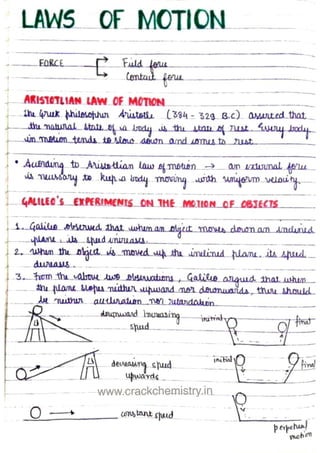 LAWS OF MOTION
FORCE
Field force
Contact force
ARISTOTLIAN LAW OF MOTION
The Greek philosopher Aristotle (384 - 329 B.C) asserted that
the natural state of a body is the state of rest. Every body
in motion tends to slow down and comes to rest.
• According to Aristotlian law of motion → an external force
is necessary to keep a body moving with uniform velocity.
GALILEO'S EXPERIMENTS ON THE MOTION OF OBJECTS
1. Galileo observed that when an object moves down an inclined
plane, its speed increases.
2. When the object is moved up the inclined plane, its speed
decreases.
3. From the above two observations, Galileo argued that when
the plane slopes neither upward nor downwards, there should
be neither acceleration nor retardation.
downward increasing
speed
initial
final
decreasing speed
upwards
initial
final
www.crackchemistry.in
constant speed
perpetual
motion